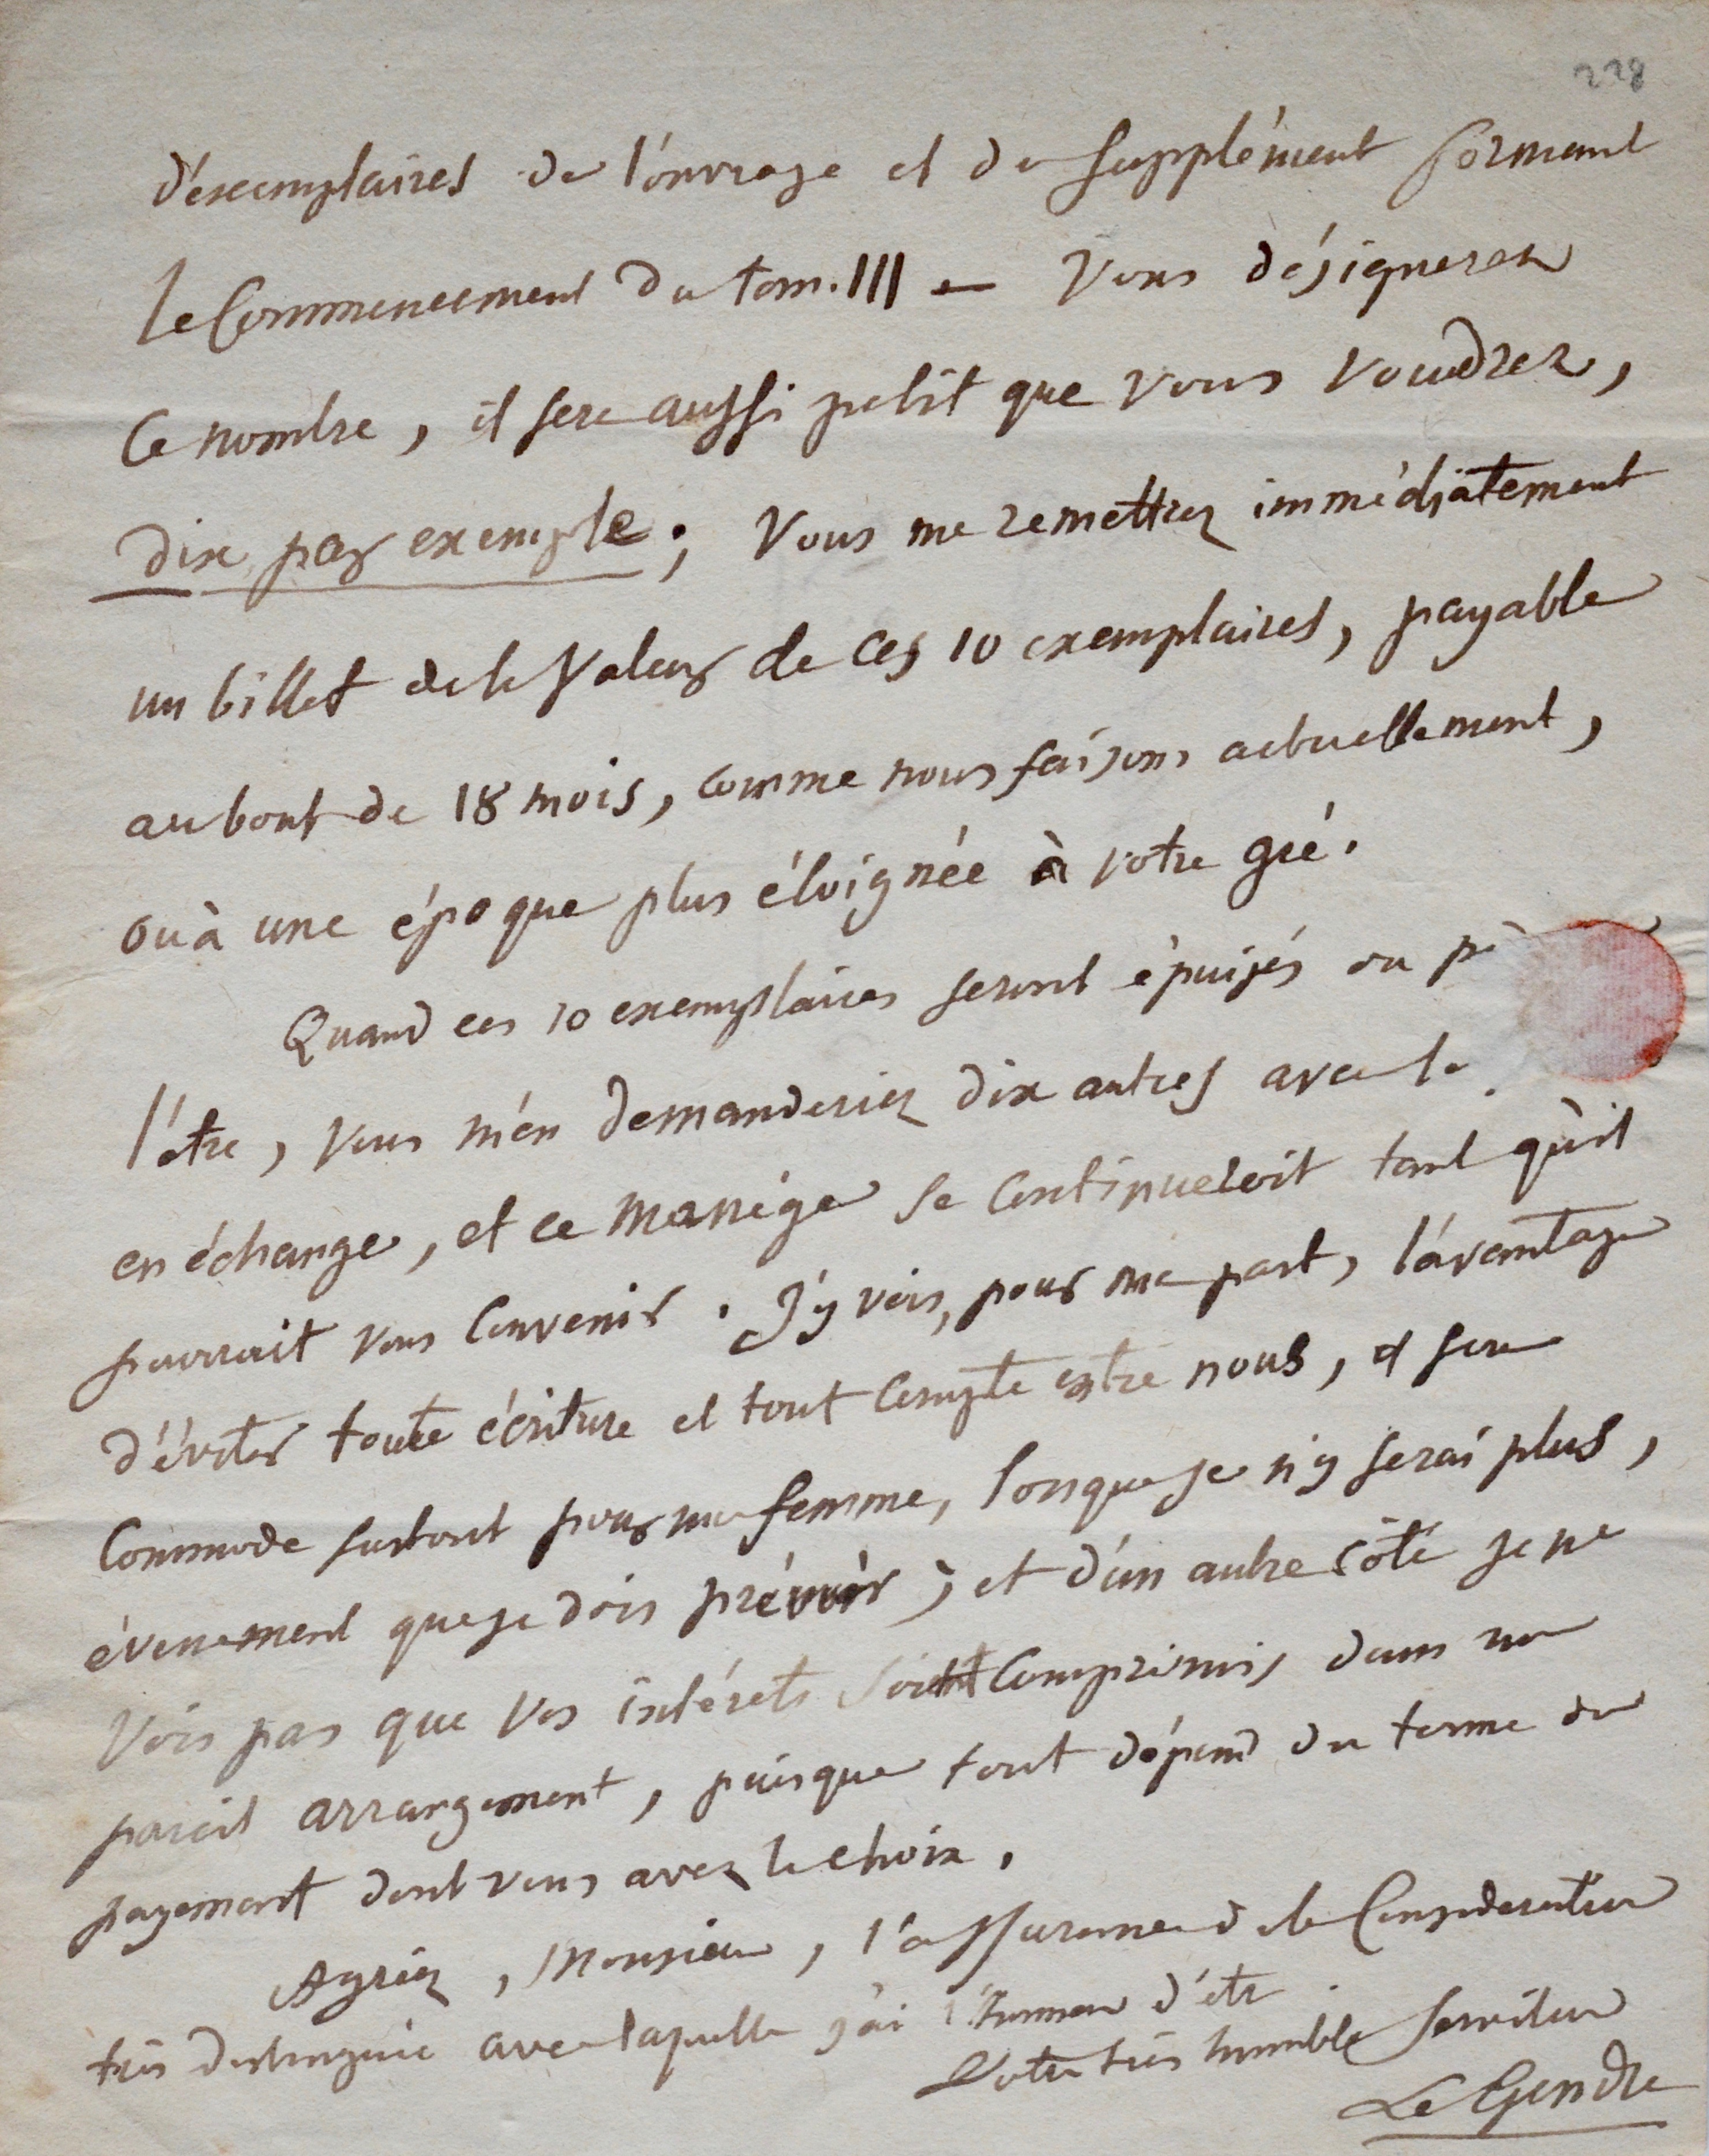 228
d'exemplaires de l'ouvrage et du supplément formant
le Commencement du tom. III — Vous désignerez
ce nombre, il sera aussi petit que vous voudrez,
dix par exemple; Vous me remettrez immédiatement
un billet de la valeur de ces 10 exemplaires, payable
au bout de 18 mois, comme nous faisons actuellement,
ou à une époque plus éloignée à votre gré.
Quand ces 10 exemplaires seront épuisés ou
l'être, vous m'en demanderiez dix autres
en échange, et ce manège se continueroit tant qu'il
pourrait vous convenir. J'y vois, pour ma part, l'avantage
d'éviter toute écriture et tout compte entre nous, et sera
Commode surtout pour ma femme, lorsque je n'y serai plus,
évenement que je dois prévoir; et d'un autre côté je ne
Vois pas que vos intérets soient Compromis dans un
pareil arrangement, puisque tout dépend du terme du
payement dont vous avez le choix.
Agréez, Monsieur, l'assurance de la Consideration
très distinguée avec laquelle j'ai l'honneur d'être
Votre très humble serviteur
Le Gendre